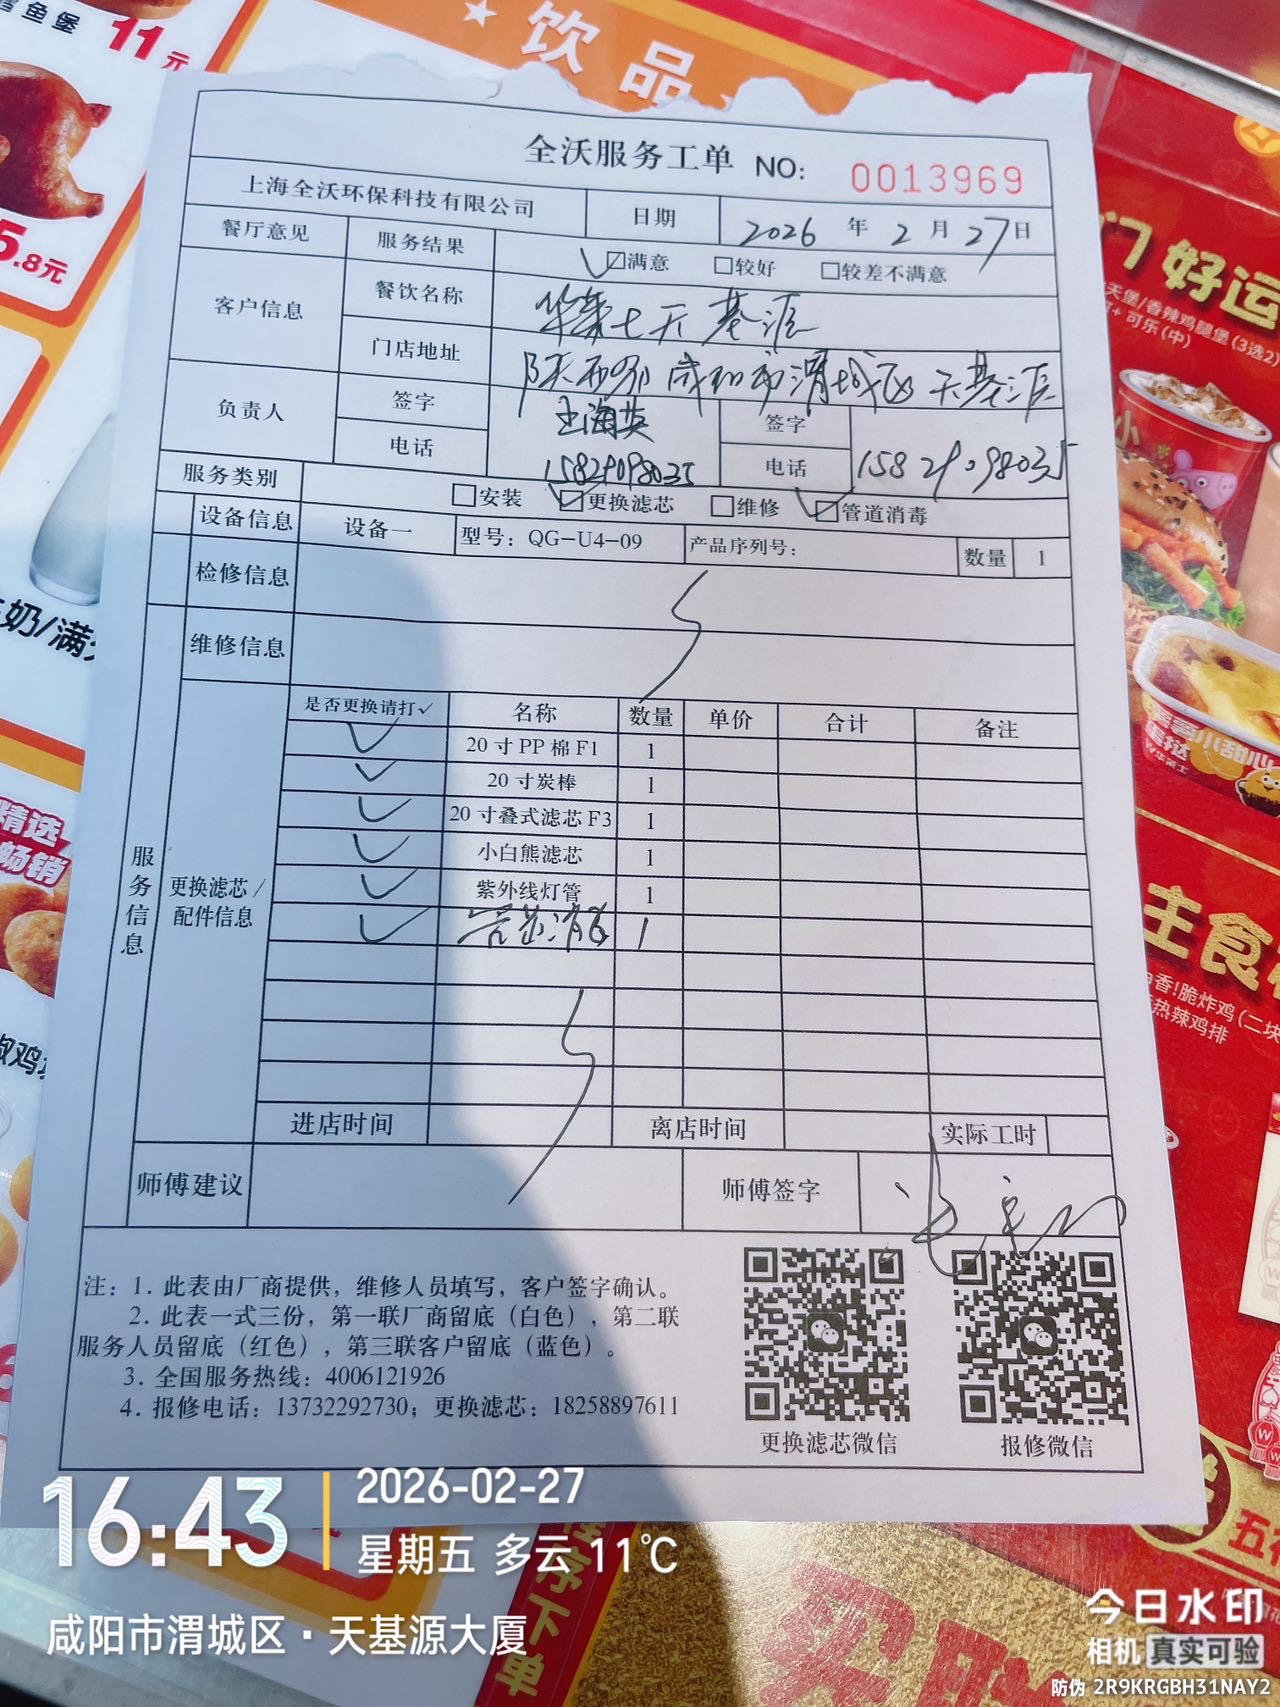 鱼堡
11元
5.8元
饮品
全沃服务工单 NO: 0013969
上海全沃环保科技有限公司 日期 2026 年 2 月 27 日
餐厅意见 服务结果 满意 较好 较差不满意
客户信息 餐饮名称 华莱士天基源
门店地址 陕西省咸阳市渭城区天基源
负责人 签字 王海英 签字
电话 15829098035 电话 15829098035
服务类别 安装 更换滤芯 维修 管道消毒
设备信息 设备一 型号：QG-U4-09 产品序列号： 数量 1
检修信息
维修信息
服务信息
更换滤芯/配件信息
是否更换请打✓ 名称 数量 单价 合计 备注
✓ 20寸PP棉F1 1
✓ 20寸炭棒 1
✓ 20寸叠式滤芯F3 1
✓ 小白熊滤芯 1
✓ 紫外线灯管 1
✓ 管道消毒 1
进店时间 离店时间 实际工时
师傅建议 师傅签字
注：1.此表由厂商提供，维修人员填写，客户签字确认。
2.此表一式三份，第一联厂商留底（白色），第二联
服务人员留底（红色），第三联客户留底（蓝色）。
3.全国服务热线：4006121926
4.报修电话：13732292730；更换滤芯：18258897611
更换滤芯微信 报修微信
门好运
天堡/香辣鸡腿堡(3选2)
+可乐(中)
小甜心
蛋挞
主食
香!脆炸鸡(二块
热辣鸡排
奶/满
精选
畅销
下单
16:43
2026-02-27
星期五 多云 11℃
咸阳市渭城区·天基源大厦
今日水印
相机 真实可验
防伪 2R9KRGBH31NAY2